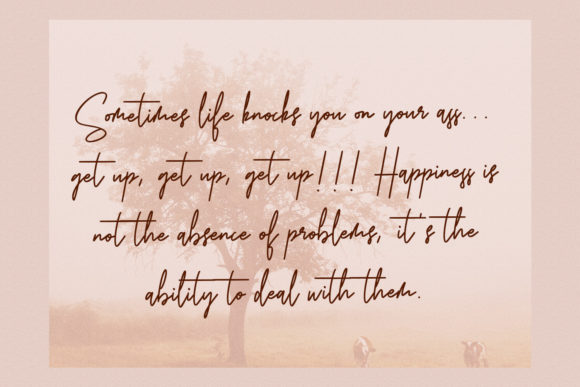 Sometimes life knocks you on your ass...
get up, get up, get up!!! Happiness is
not the absence of problems, it's the
ability to deal with them.